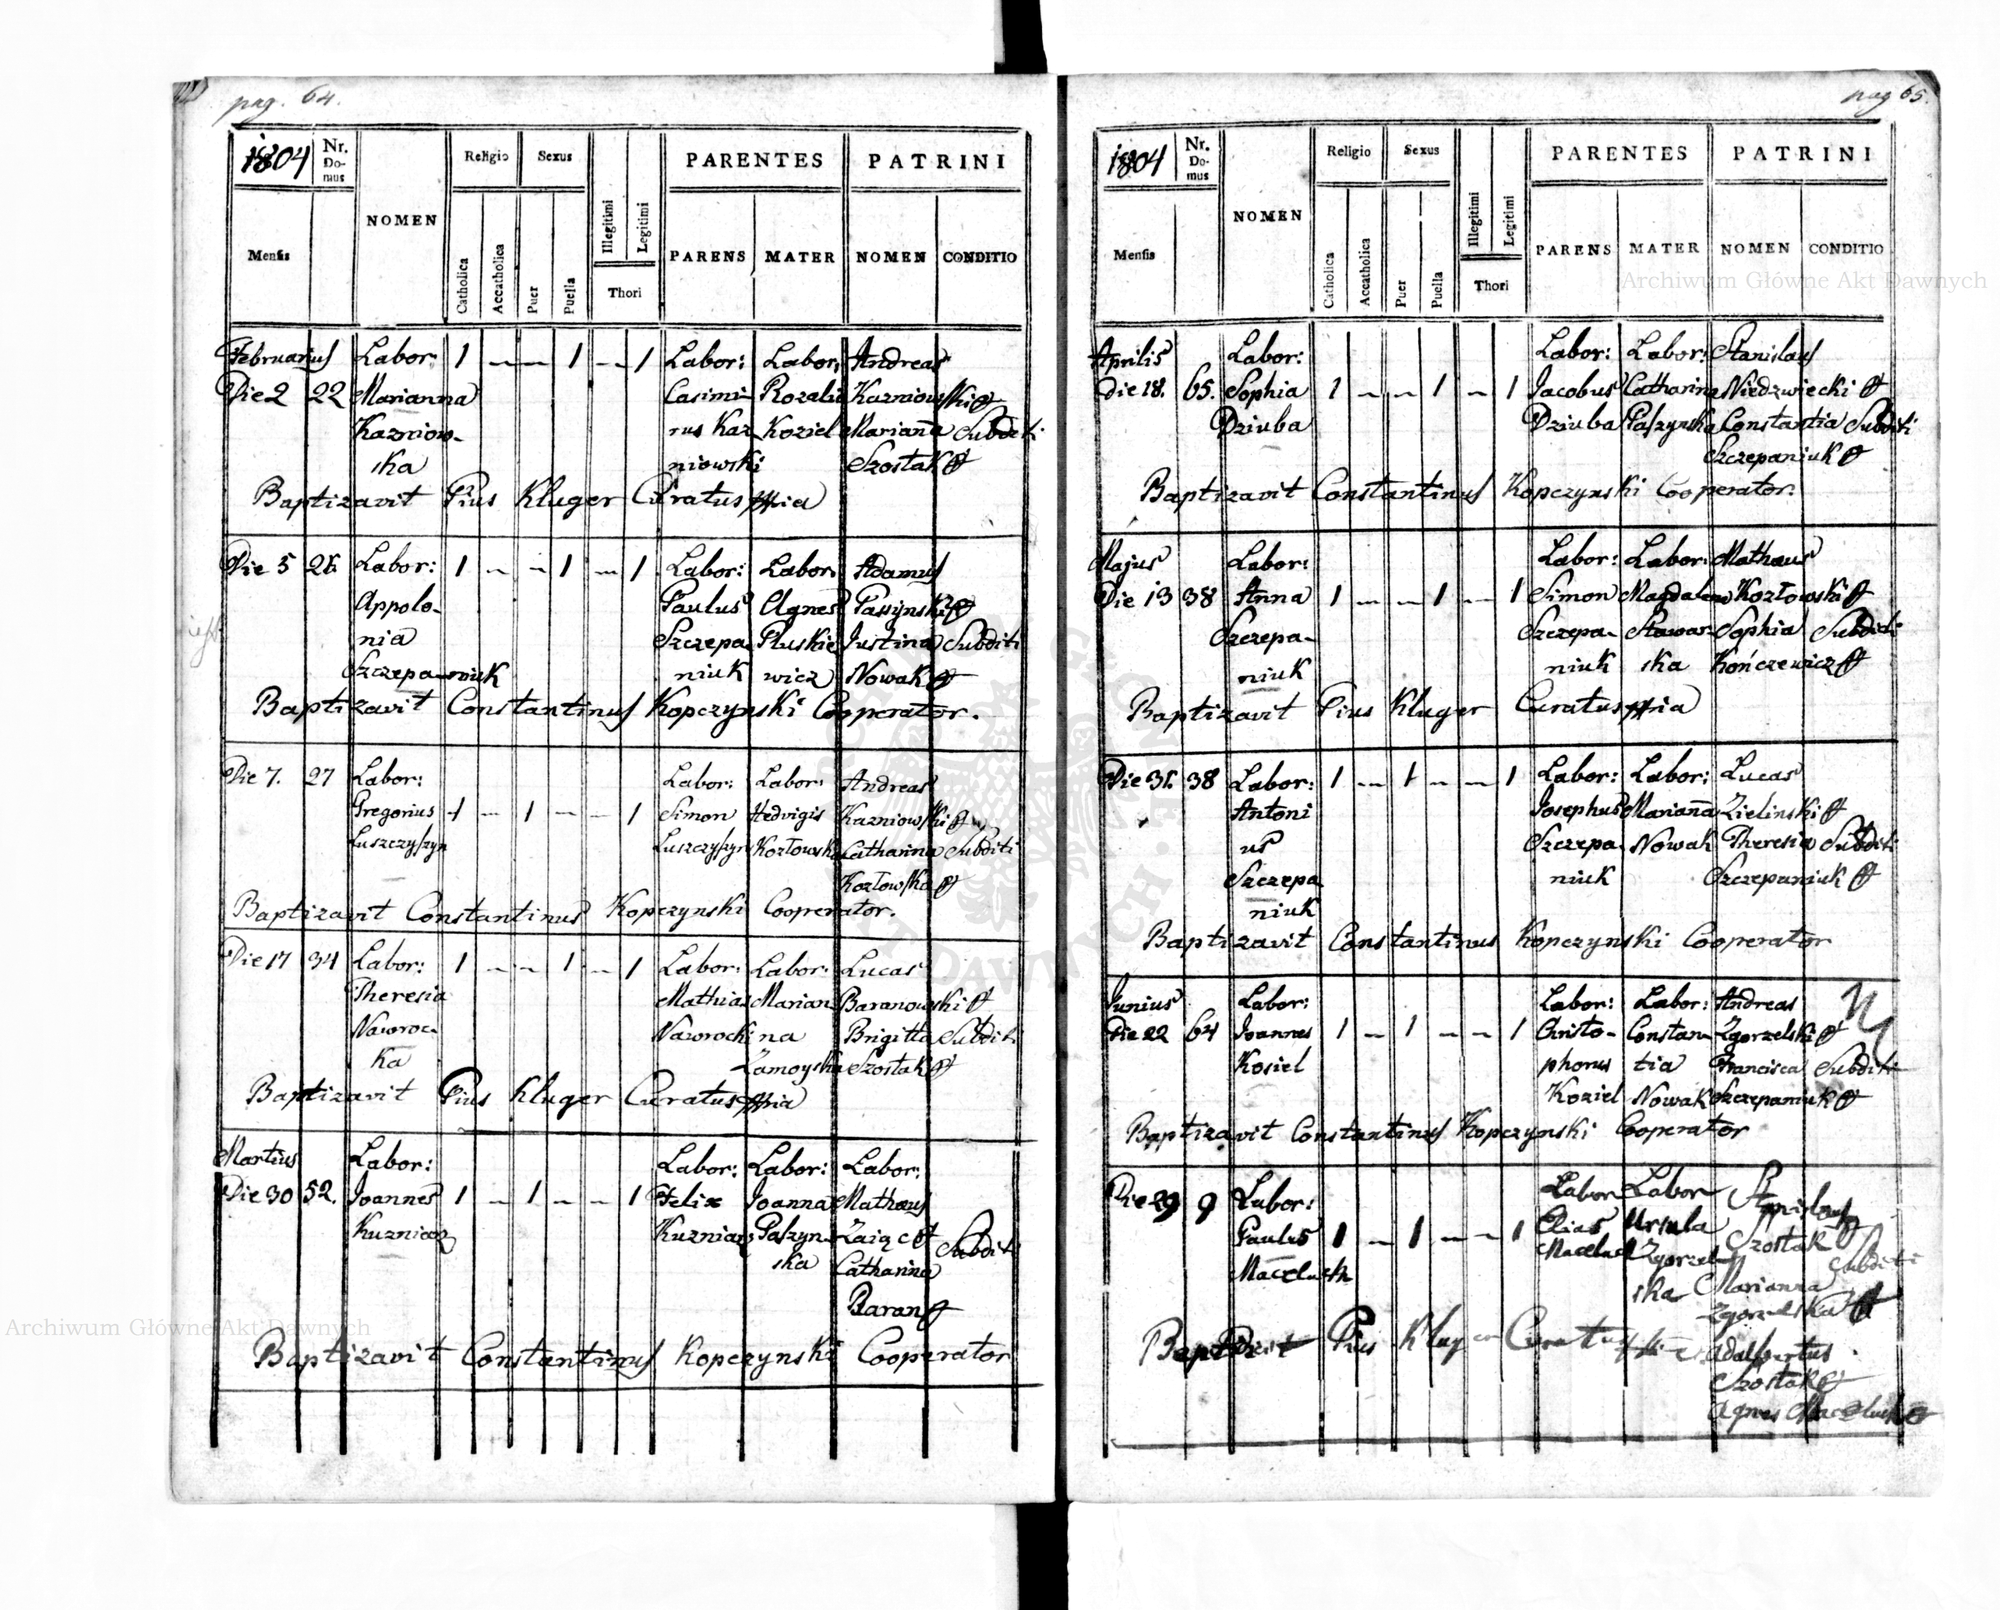 pag. 64.
1804 Nr. Domus NOMEN Religio Sexus PARENTES PATRINI
Mensis Catholica Accatholica Puer Puella Illegitimi Legitimi Thori PARENS MATER NOMEN CONDITIO
Februarius Labor: 1 — — 1 — 1 Labor: Labor: Andreas
Die 2 22 Marianna Casimi- Rozalia Kazniowski
Kazniow- rus Kaz- Koziel Marianna Subditi
ska niowski Szostak
Baptizavit Pius Kluger Curatus mpria
Die 5 26 Labor: 1 — — 1 — 1 Labor: Labor: Adamus
Appolo- Paulus Agnes Passynski
nia Szczepa- Pluskie- Justina Subditi
Szczepaniuk niuk wicz Nowak
Baptizavit Constantinus Kopczynski Cooperator.
Die 7. 27 Labor: Labor: Labor: Andreas
Gregorius 1 — 1 — — 1 Simon Hedvigis Kazniowski
Luszczyszyn Luszczyszyn Kozłowska Catharina Subditi
Kozłowska
Baptizavit Constantinus Kopczynski Cooperator.
Die 17 34 Labor: 1 — — 1 — 1 Labor: Labor: Lucas
Theresia Mathias Marian- Baranowski
Naworoc- Naworocki na Brigitta Subditi
ka Zamoyska Szostak
Baptizavit Pius Kluger Curatus mpria
Martius Labor: Labor: Labor: Labor:
Die 30 52. Joannes 1 — 1 — — 1 Felix Joanna Mathæus
Kuzniarz Kuzniarz Paszyn- Zaiąc Subditi
ska Catharina
Baran
Baptizavit Constantinus Kopczynski Cooperator
pag 65.
1804 Nr. Domus NOMEN Religio Sexus PARENTES PATRINI
Mensis Catholica Accatholica Puer Puella Illegitimi Legitimi Thori PARENS MATER NOMEN CONDITIO
Aprilis Labor: Labor: Labor: Stanislaus
Die 18. 65. Sophia 1 — — 1 — 1 Jacobus Catharina Niedzwiecki
Dziuba Dziuba Paszynska Constantia Subditi
Szczepaniuk
Baptizavit Constantinus Kopczynski Cooperator.
Majus Labor: Labor: Labor: Mathæus
Die 13 38 Anna 1 — — 1 — 1 Simon Magdalena Kozłowski
Szczepa- Szczepa- Stawar- Sophia Subditi
niuk niuk ska Kończewicz
Baptizavit Pius Kluger Curatus mpria
Die 31. 38 Labor: 1 — 1 — — 1 Labor: Labor: Lucas
Antoni Josephus Marianna Zielinski
us Szczepa- Nowak Theresia Subditi
Szczepa niuk Szczepaniuk
niuk
Baptizavit Constantinus Kopczynski Cooperator
Junius Labor: Labor: Labor: Andreas
Die 22 64 Joannes 1 — 1 — — 1 Christo- Constan- Zgorzelski
Kosiel phorus tia Francisca Subditi
Koziel Nowak Szczepaniuk
Baptizavit Constantinus Kopczynski Cooperator
Die 29 9 Labor: Labor Labor Stanislaus
Paulus 1 — 1 — — 1 Elias Ursula Szostak
Maceluch Maceluch Zgorzel- Subditi
ska Marianna
Zgorzelska
Baptizavit Pius Kluger Curatus
Adalbertus
Szostak
Agnes Maceluch
Archiwum Główne Akt Dawnych
Archiwum Główne Akt Dawnych